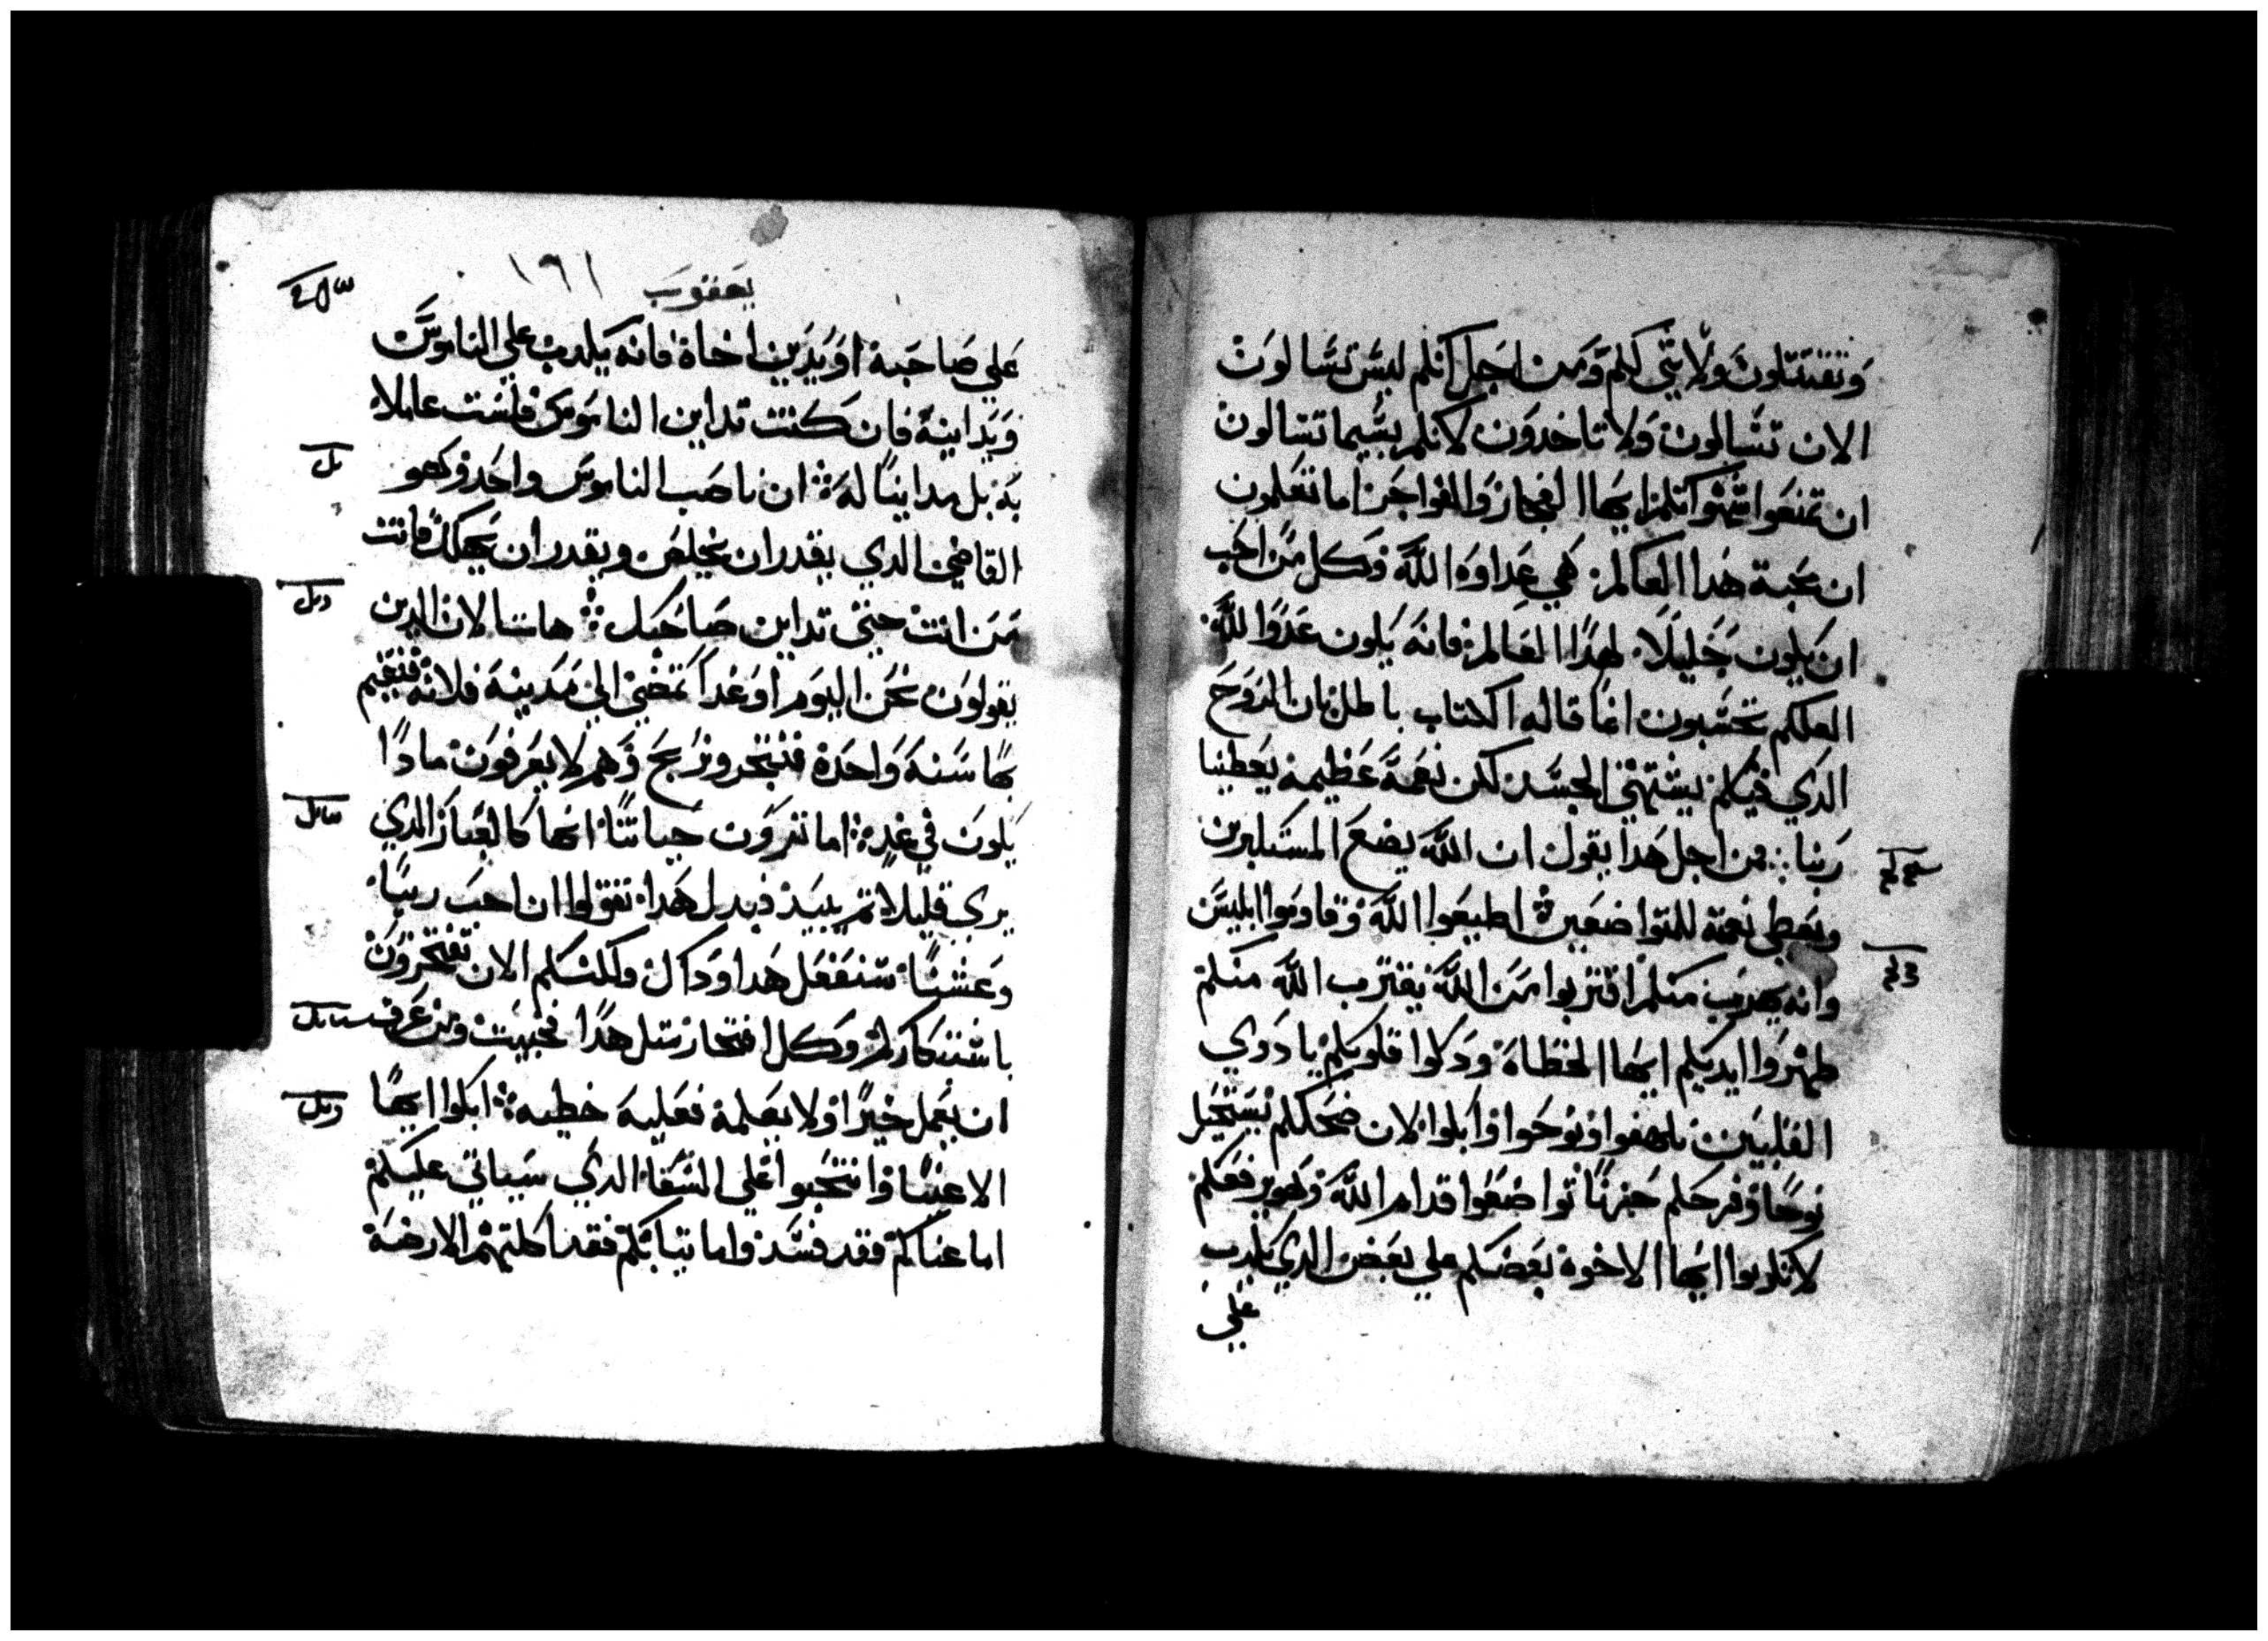 وتقتتلون ولا شي لكم ومن اجل انكم ليس تسالون
الان تسالون ولا تاخدون لانكم بيسما تسالون
ان تمنعوا شهواتكم ايها الفجار والفواجر اما تعلمون
ان محبة هدا العالم هي عداوه الله وكل من احب
ان يكون خليلا لهدا العالم فانه يكون عدوا لله
العلكم تحسبون انما قاله الكتاب باطل بان الروح
الدي فيكم يشتهي الجسد لكن نعمة عظيمه يعطينا
ربنا من اجل هدا يقول ان الله يضع المستكبرين
ويعطي نعمة للمتواضعين اطيعوا الله وقاوموا ابليس
وانه يهرب منكم اقتربوا من الله يقترب الله منكم
طهروا ايديكم ايها الخطاة ودكوا قلوبكم يا دوي
القلبين تلهفوا ونوحوا وابكوا لان ضحككم يستحيل
نوحا وفرحكم حزنا تواضعوا قدام الله وهو يرفعكم
لا تكدبوا ايها الاخوة بعضكم علي بعض الدي يكدب
علي
يعقوب ١٦١
علي صاحبة او يدين اخاة فانه يكدب علي الناموس
ويداينة فان كنت تداين الناموس فلست عاملا
بة بل مداينا له ان ناصب الناموس واحد وهو
القاضي الدي يقدر ان يخلص ويقدر ان يهلك فانت
من انت حتي تداين صاحبك هاتا الان الدين
يقولون نحن اليوم او غدا نمضي الي مدينة فلانة فنقيم
بها سنة واحدة فنتجر ونربح وهم لا يعرفون مادا
يكون في غد اما تنرون حياتنا انها كالبخار الدي
يري قليلا تم يبيد فبدل هدا تقولوا ان احب ربنا
وعشنا سنفعل هدا وداك ولكنكم الان تفتخرون
باستكباركم وكل افتخار متل هدا فخبيت ومن عرف
ان يعمل خيرا ولا يعملة فعلية خطيه ابكوا ايها
الاغنيا وانتحبوا علي الشقا الدي سياتي عليكم
اما غناكم فقد فسد واما تيابكم فقد اكلتهم الارضة